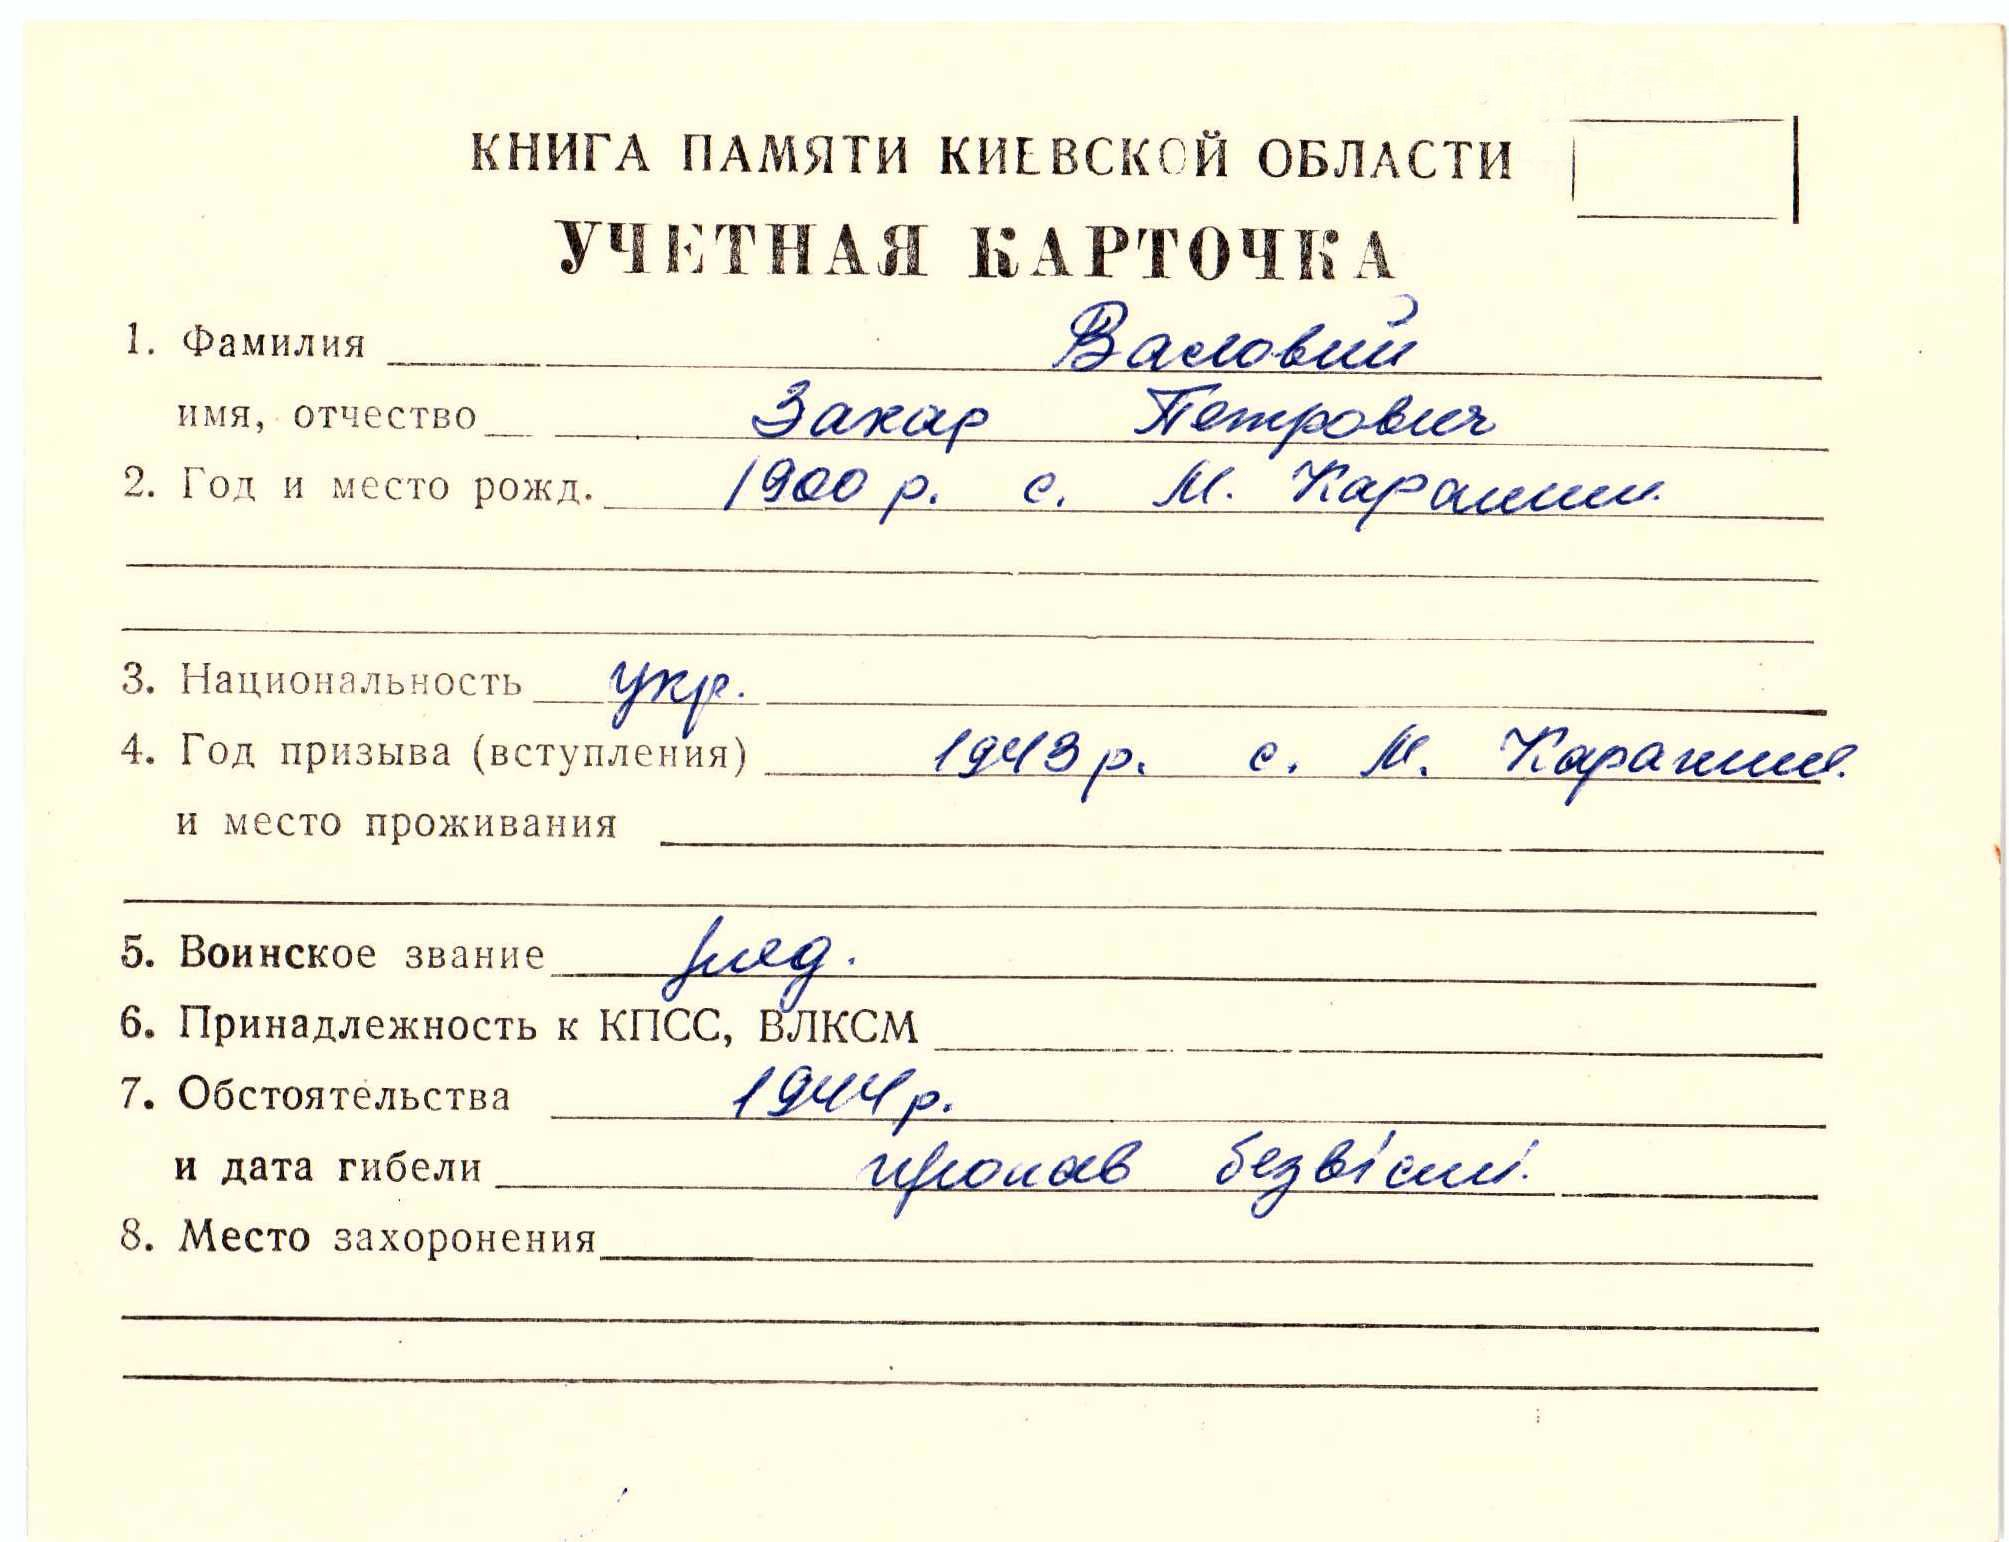 КНИГА ПАМЯТИ КИЕВСКОЙ ОБЛАСТИ
УЧЕТНАЯ КАРТОЧКА
1. Фамилия Васловий
имя, отчество Захар Петрович
2. Год и место рожд. 1900 р. с. М. Каратин.
3. Национальность укр.
4. Год призыва (вступления) 1943 р. с. М.
и место проживания
5. Воинское звание ряд.
6. Принадлежность к КПСС, ВЛКСМ
7. Обстоятельства 1944 р.
и дата гибели пропав безвісті.
8. Место захоронения